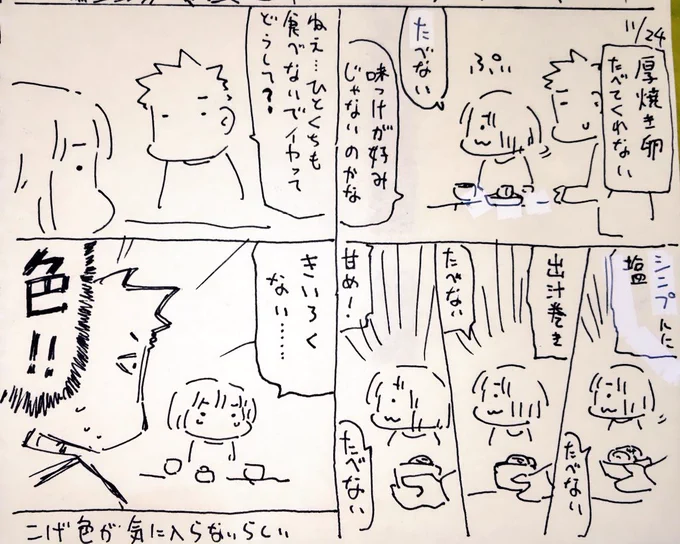 11/24
厚焼き卵
たべてくれない
ぷい
たべない
味つけが好み
じゃないのかな
シンプルに
塩
たべない
出汁巻き
たべない
甘め!
たべない
ねえ…ひとくちも
食べないでイヤって
どうして?
きいろく
ない……
色!!
こげ色が気に入らないらしい